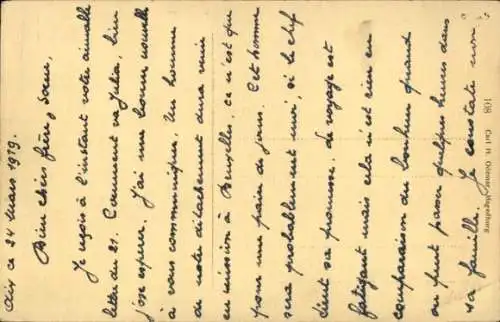 Aix ce 24 mars 1919.
Bien chers frère, soeur,
Je reçois à l'instant votre aimable
lettre du 21. Comment va Julia, bien
j'ose espérer. J'ai une bonne nouvelle
à vous communiquer. Un homme
de notre détachement devra venir
en mission à Bruxelles, ce n'est que
pour une paire de jours. Cet homme
sera probablement moi, si le chef
tient sa promesse. Le voyage est
fatigant mais cela n'est rien en
comparaison du bonheur quand
on peut passer quelques heures dans
sa famille. Je constate non
108 Carl H. Odemar, Magdeburg